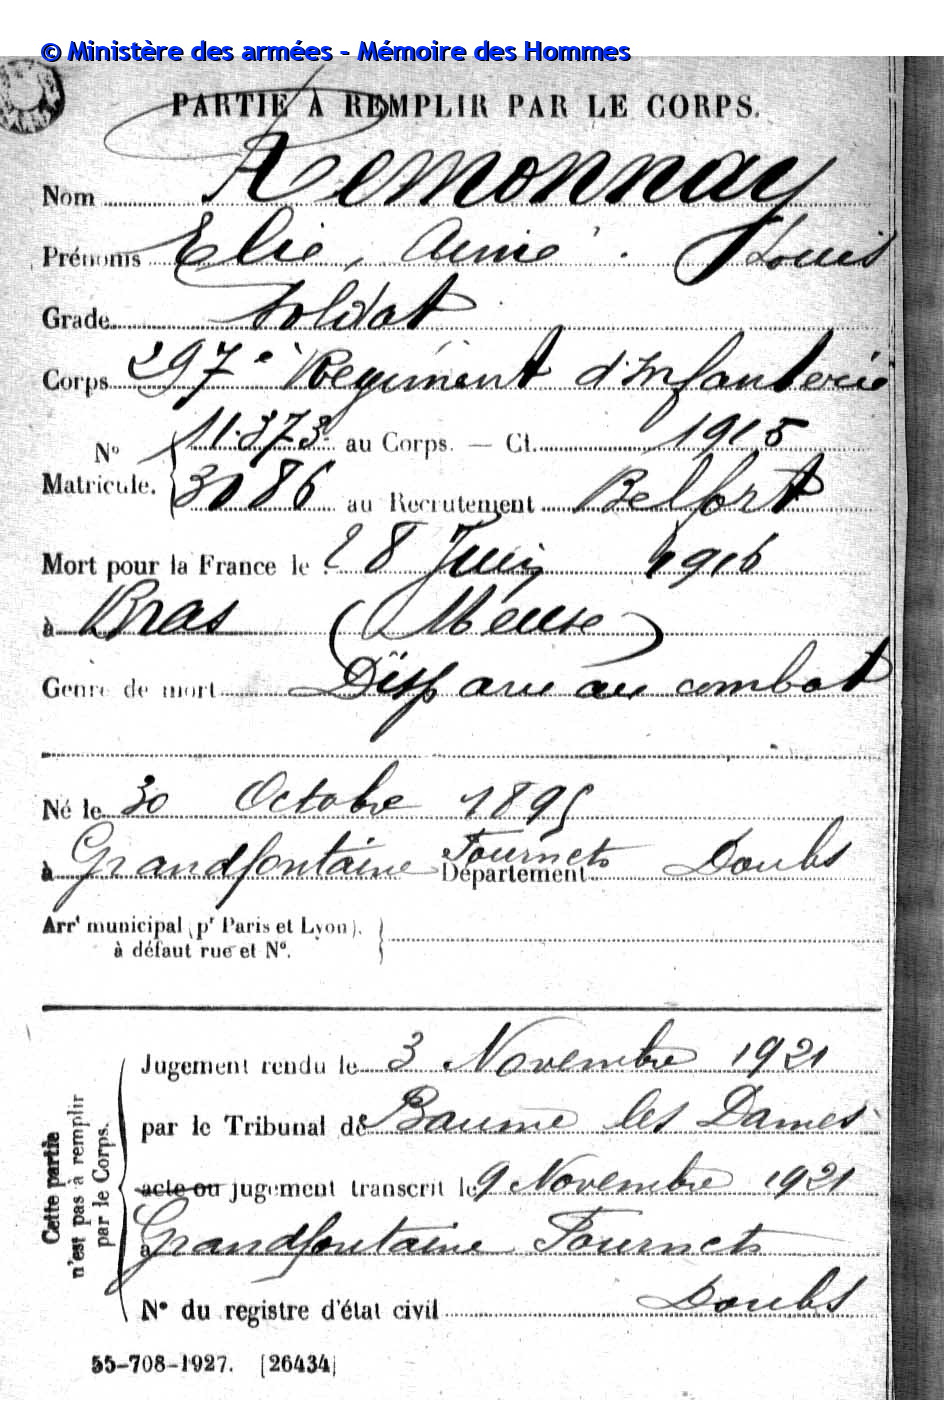 © Ministère des armées - Mémoire des Hommes
PARTIE À REMPLIR PAR LE CORPS.
Nom Rémonnay
Prénoms Elie, Aimé. Louis
Grade Soldat
Corps 297e Régiment d'Infanterie
11.373 au Corps. — Cl. 1915
No
Matricule.
3086 au Recrutement Belfort
Mort pour la France le 28 Juin 1916
à Bras (Meuse)
Genre de mort Disparu au combat
Né le 30 Octobre 1895
à Grandfontaine Fournets Département Doubs
Arrt municipal (pr Paris et Lyon),
à défaut rue et No.
Cette partie
n'est pas à remplir
par le Corps.
Jugement rendu le 3 Novembre 1921
par le Tribunal de Baume les Dames
acte ou jugement transcrit le 9 Novembre 1921
à Grandfontaine Fournets
No du registre d'état civil Doubs
55-708-1927. [26434]